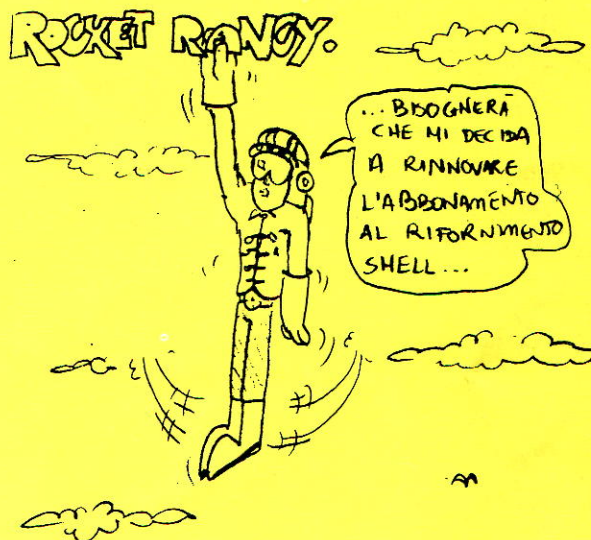 ROCKET RANGY.
...BISOGNERÀ
CHE MI DECIDA
A RINNOVARE
L'ABBONAMENTO
AL RIFORNIMENTO
SHELL...